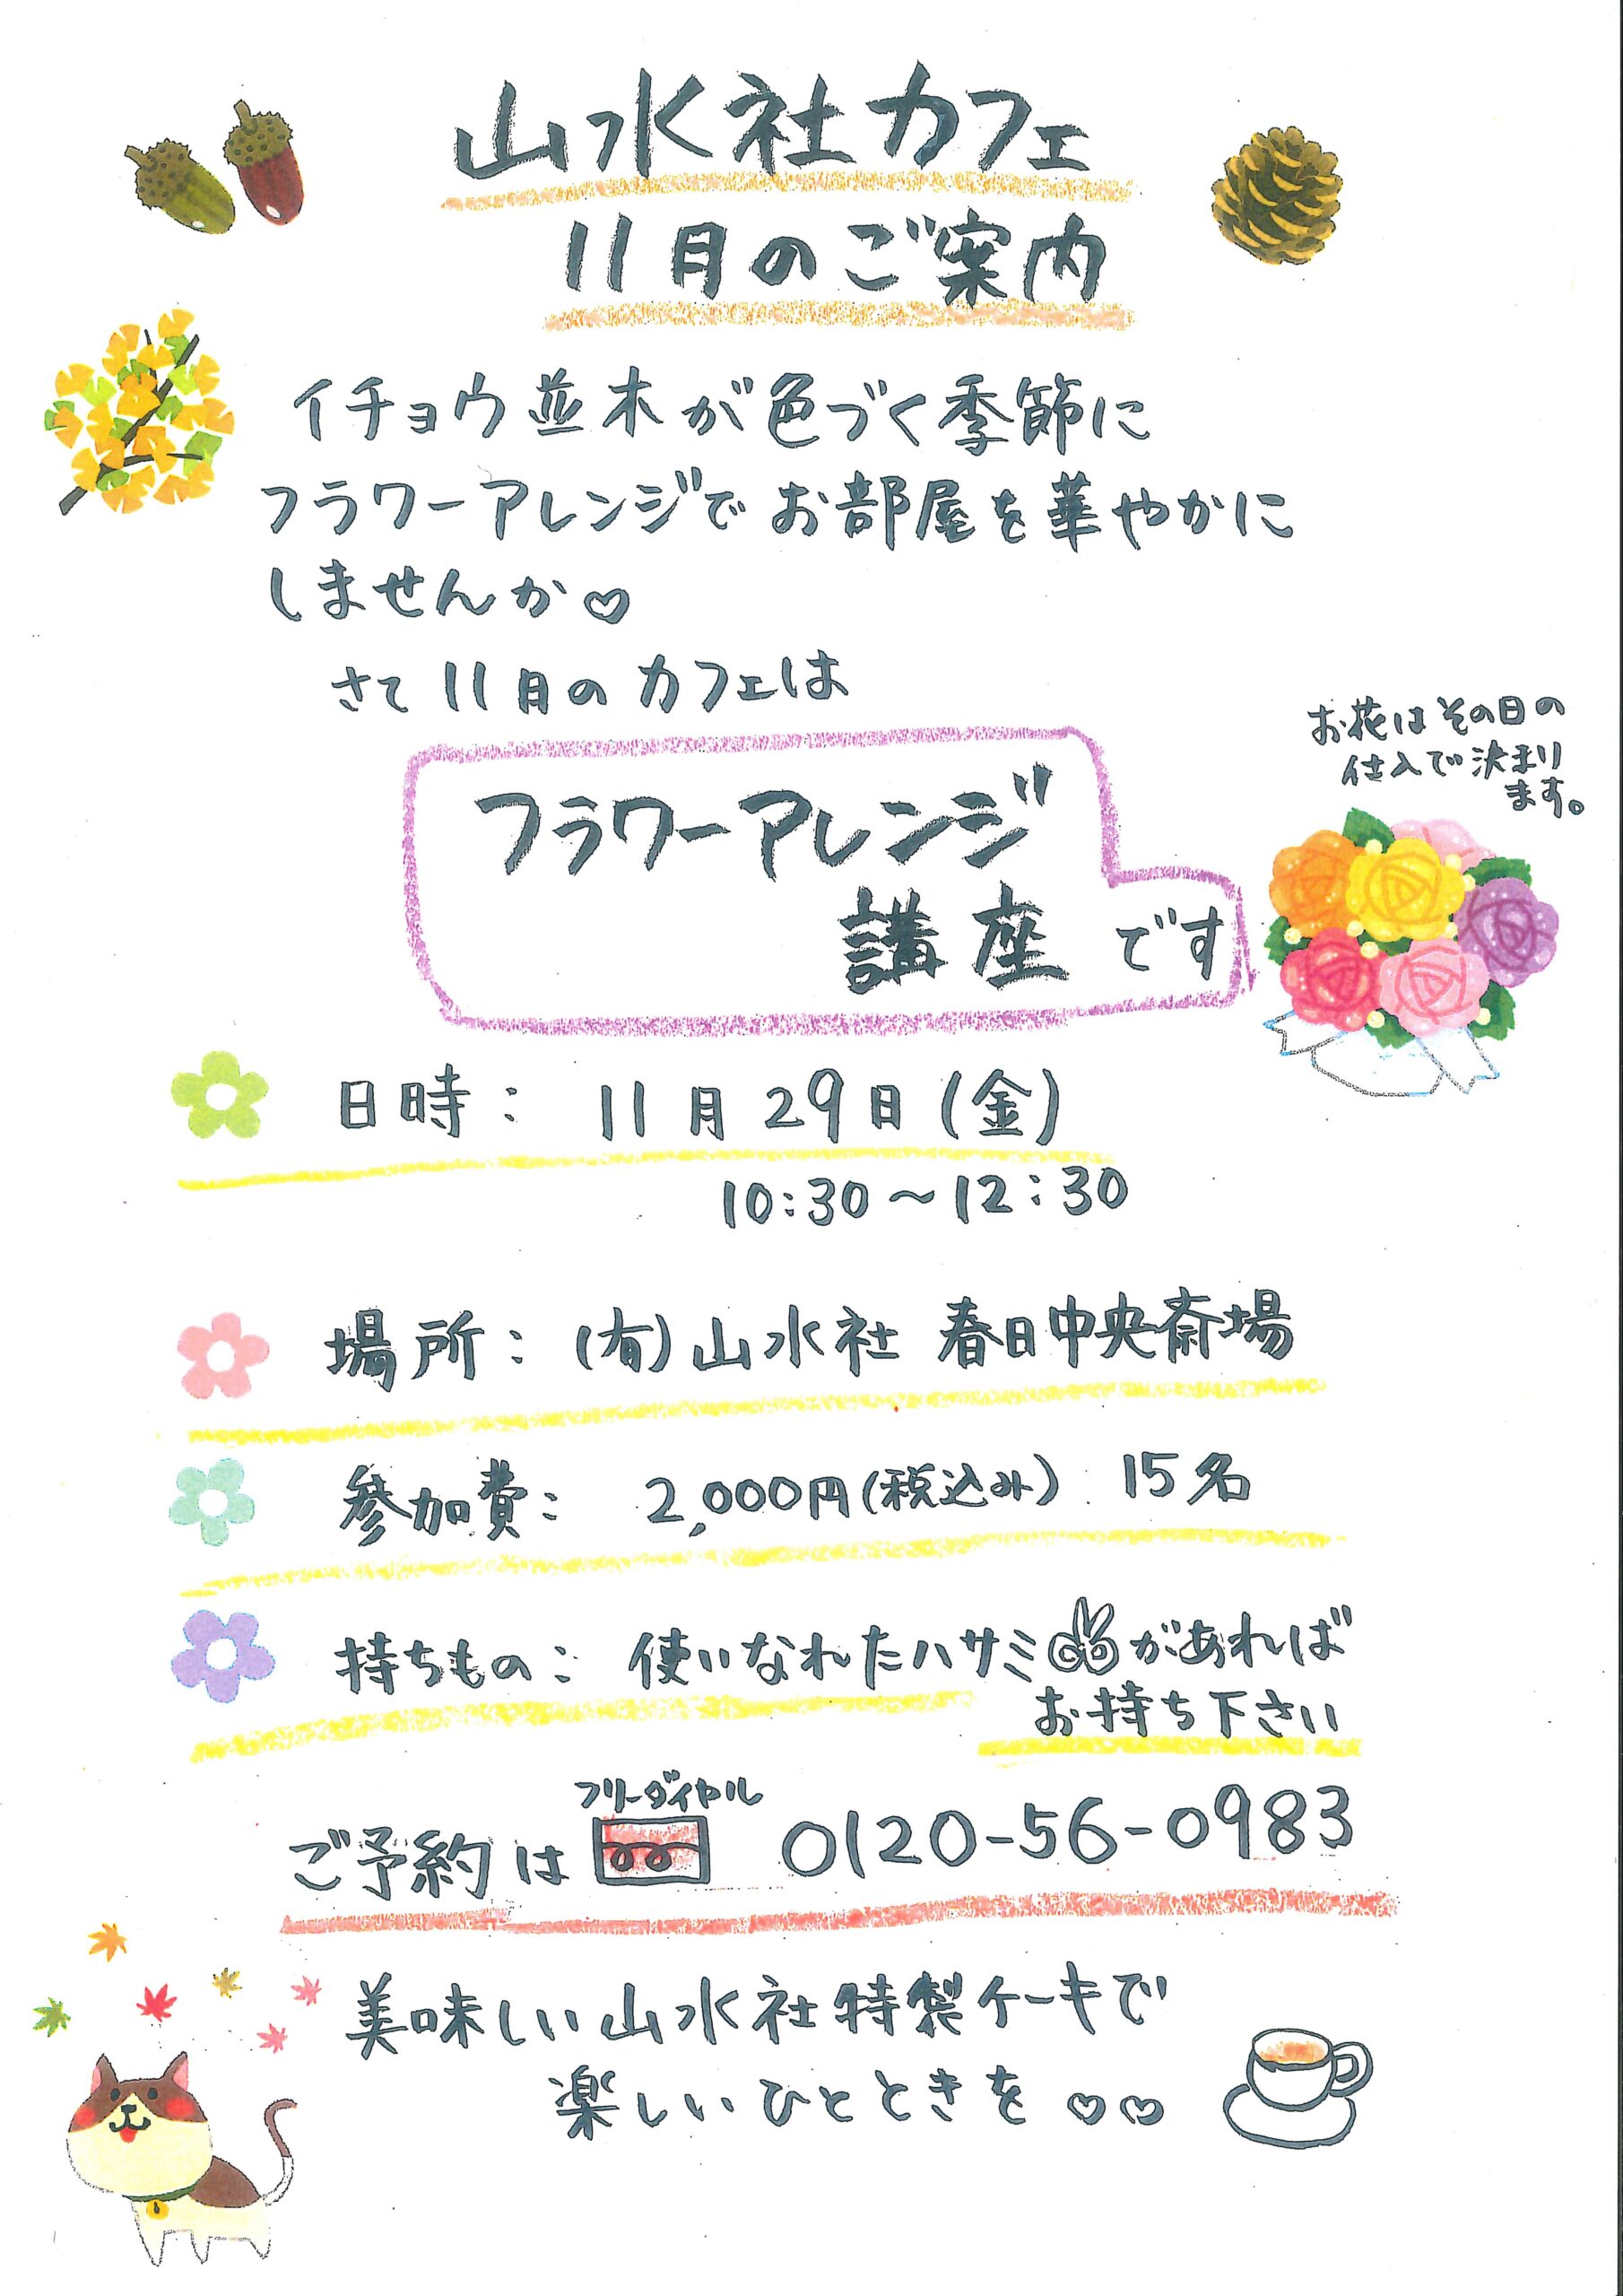 山水社カフェ
11月のご案内
イチョウ並木が色づく季節に
フラワーアレンジでお部屋を華やかに
しませんか♡
さて11月のカフェは
お花はその日の
仕入で決まり
ます。
フラワーアレンジ
講座です
日時：11月29日(金)
10:30〜12:30
場所：(有)山水社 春日中央斎場
参加費：2,000円(税込み) 15名
持ちもの：使いなれたハサミがあれば
お持ち下さい
フリーダイヤル
ご予約は 0120-56-0983
美味しい山水社特製ケーキで
楽しいひとときを♡♡